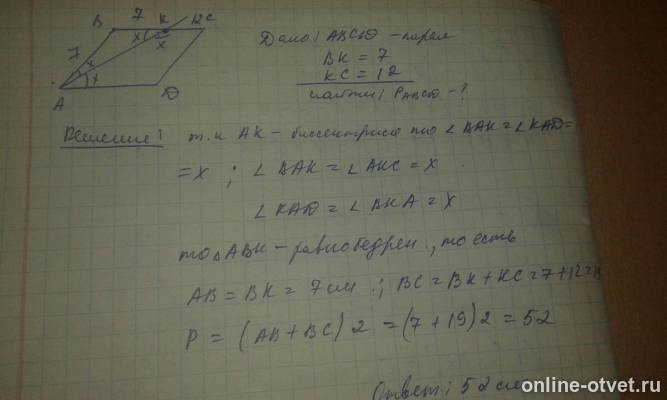 B 7 K 12 C
7 x x x x
A D
Дано: ABCD - парал
BK = 7
KC = 12
найти: P ABCD - ?
Решение: т.к AK - биссектриса то ∠BAK = ∠KAD =
= x ; ∠BAK = ∠AKC = x .
∠KAD = ∠BKA = x
то △ABK - равнобедрен., то есть
AB = BK = 7 см .; BC = BK + KC = 7 + 12 = 19
P = (AB + BC) 2 = (7 + 19) 2 = 52
Ответ: 52 см
online-otvet.ru